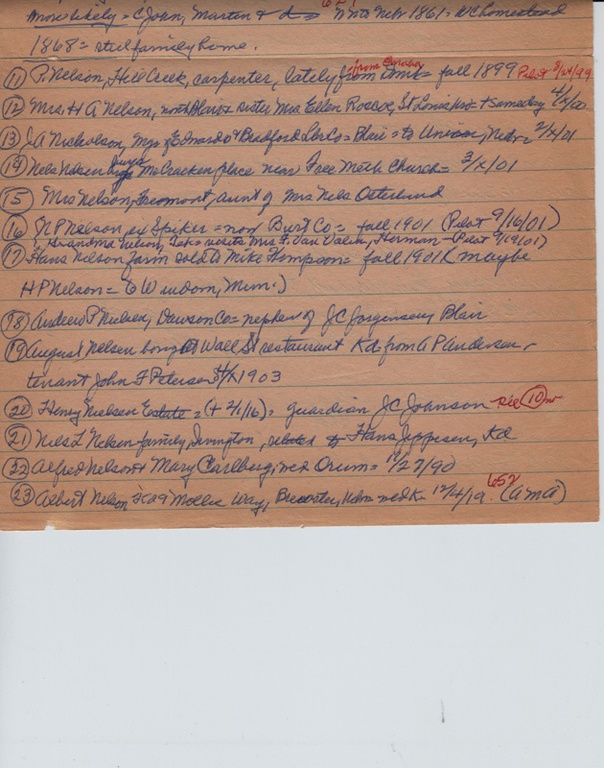 more likely = C John, Marten + = Wn to Nebr 1861 = WC homestead
1868 = still family home.
(11) P. Nelson, Hill Creek, carpenter, lately from = fall 1899 Pilot 8/24/99
(12) Mrs. H A Nelson, north Blair = sister Mrs Ellen Roscoe, St Louis + someday 4/x/00
(13) J A Nicholson, Mgr of Edwards & Bradford Lbr Co = Blair = to Union, Nebr = 2/x/01
(14) Nels Nelsen buys McCracken place near Free Meth Church = 3/x/01
(15) Mrs Nelson, Fremont, aunt of Mrs Nels Osterlund
(16) N P Nelson, ex Spiker = now Burt Co = fall 1901 (Pilot 9/16/01)
Grandma Nelson, visits Mrs F. Van Valin, Herman - Pilot 9/19/01)
(17) Hans Nelson farm sold to Mike Thompson = fall 1901 (maybe
H P Nelson = to Windom, Minn.)
(18) Andrew P Nielsen, Dawson Co = nephew of J C Jorgensen, Blair
(19) August Nelsen buys Wall St restaurant Kd from A P Andersen,
tenant John F Petersen 4/x/1903
(20) Henry Nielsen Estate = (+ 4/1/16) = guardian J C Johnson see (10)
(21) Nels L Nelsen family, Irvington, related to Hans Jeppesen, Kd
(22) Alfred Nelson + Mary Carlberg, wed Orum = 11/27/90
(23) Albert Nelson + Mollie Way, Brewster, Nebr wed K = 12/4/19. 652 (a m a)